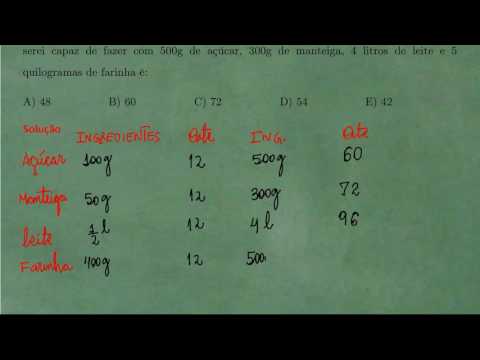 serei capaz de fazer com 500g de açúcar, 300g de manteiga, 4 litros de leite e 5
quilogramas de farinha é:
A) 48 B) 60 C) 72 D) 54 E) 42
Solução INGREDIENTES Qte ING. Qte
Açúcar 100g 12 500g 60
Manteiga 50g 12 300g 72
leite 1/2 l 12 4 l 96
Farinha 400g 12 500